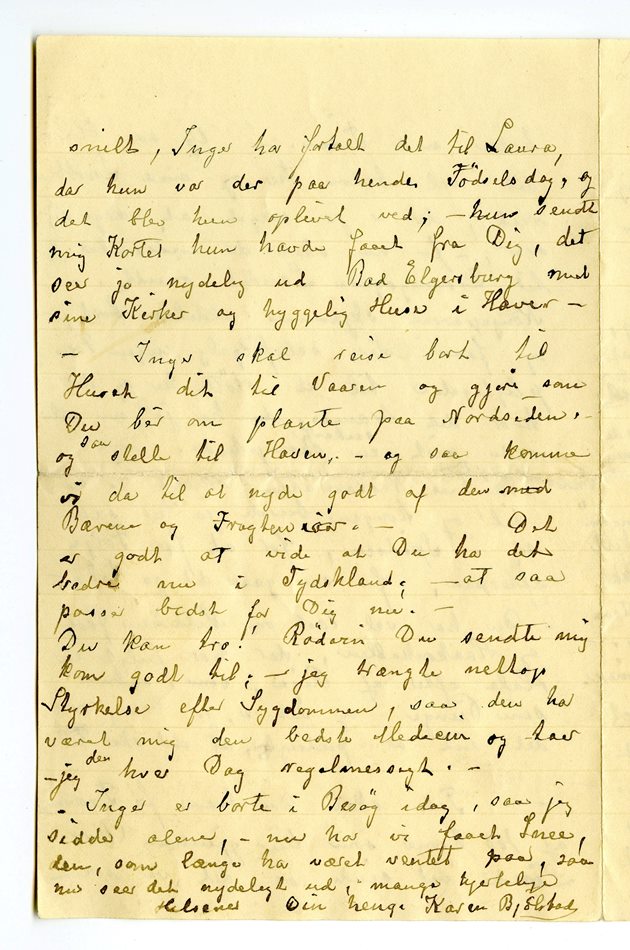 snilt, Inger har fortalt det til Laura,
da hun var der paa hendes Födselsdag, og
det blev hun oplivet ved; – hun sendte
mig Kortet hun havde faaet fra Dig, det
seer jo nydelig ud Bad Elgersburg med
sine Kirker og hyggelig Huse i Haver –
– Inger skal reise bort til
Huset dit til Vaaren og gjøre som
Du bér om plante paa Nordsiden. –
og saa stelle til Haven. – og saa komme
vi da til at nyde godt af den
Bærene og Frugten iaar. – Det
er godt at vide at Du har det
bedre nu i Tydskland; – at saa
passer bedst for Dig nu. –
Du kan tro! Rödvin Du sendte mig
kom godt til; – jeg trængte nettop
Styrkelse efter Sygdommen, saa den har
været mig den bedste Medecin og taer
– jeg den hver Dag regelmessigt. –
– Inger er borte i Besög idag, saa jeg
sidder alene, – nu har vi faaet Snee,
den, som længe har været ventet paa, saa
nu seer det nydeligt ud; mange hjertelige
Hilsener Din hengi. Karen Bjölstad